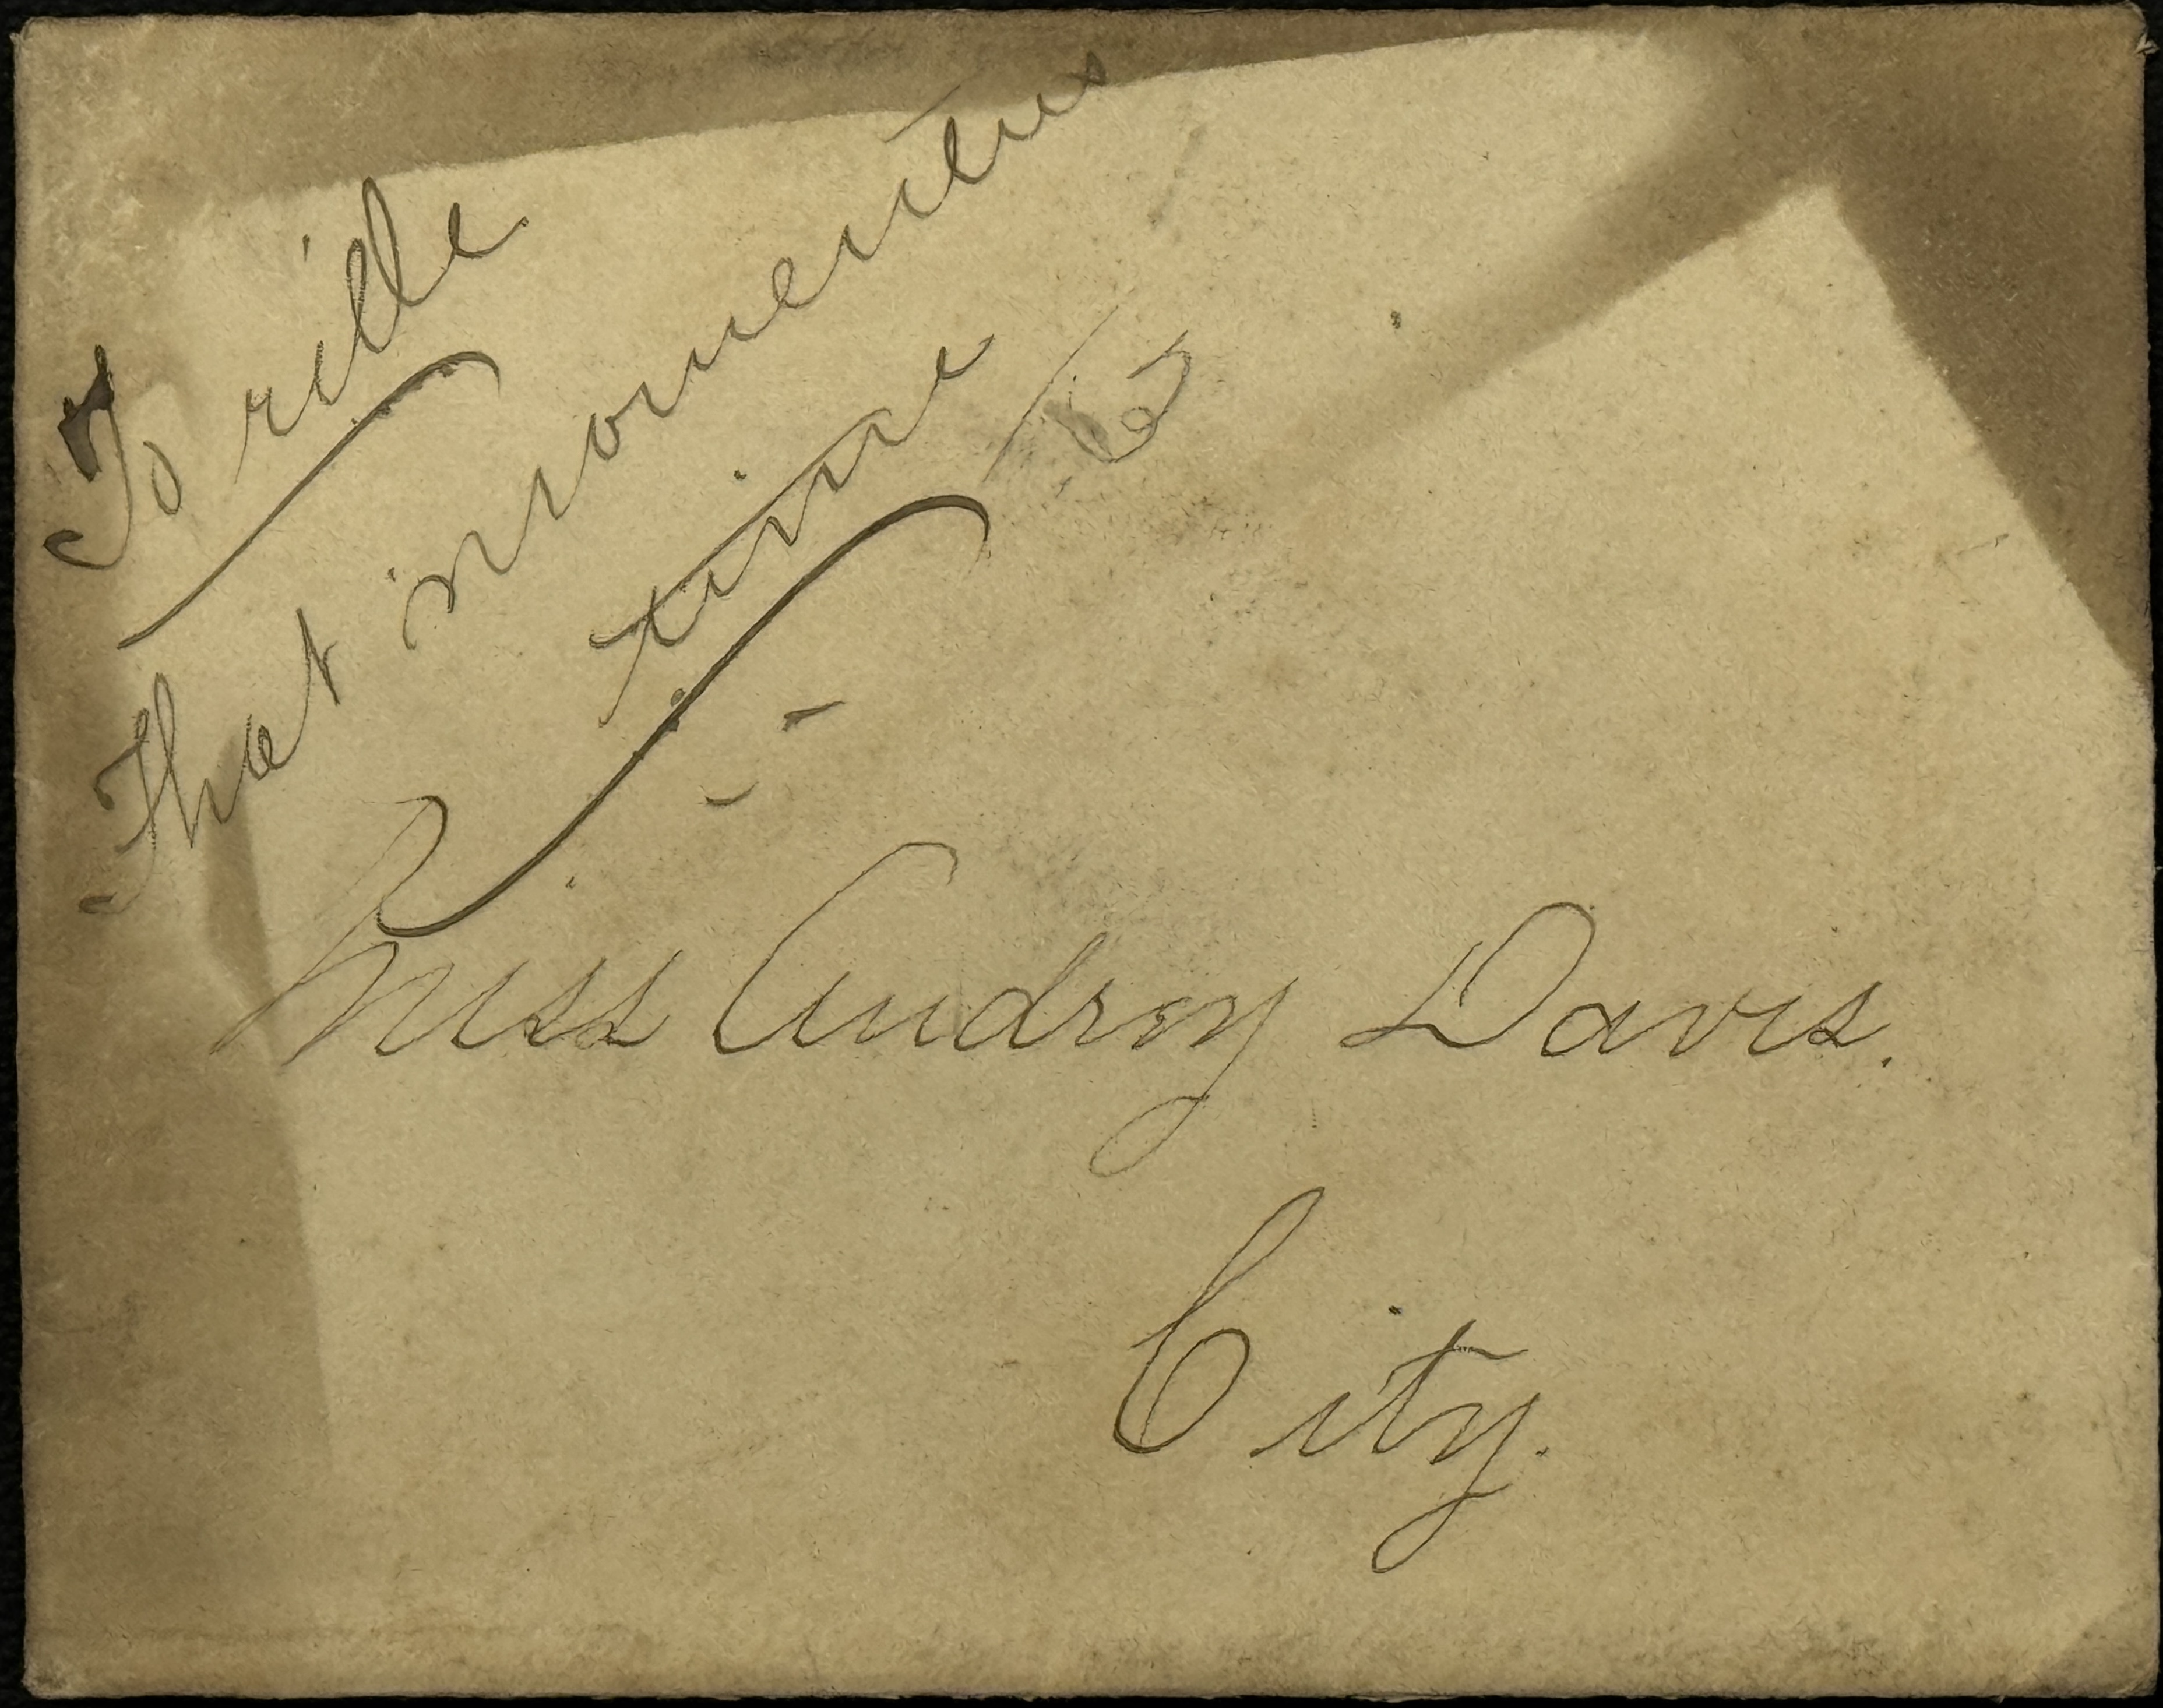 To ride
That momentus
time
Miss Audrey Davis.
City.